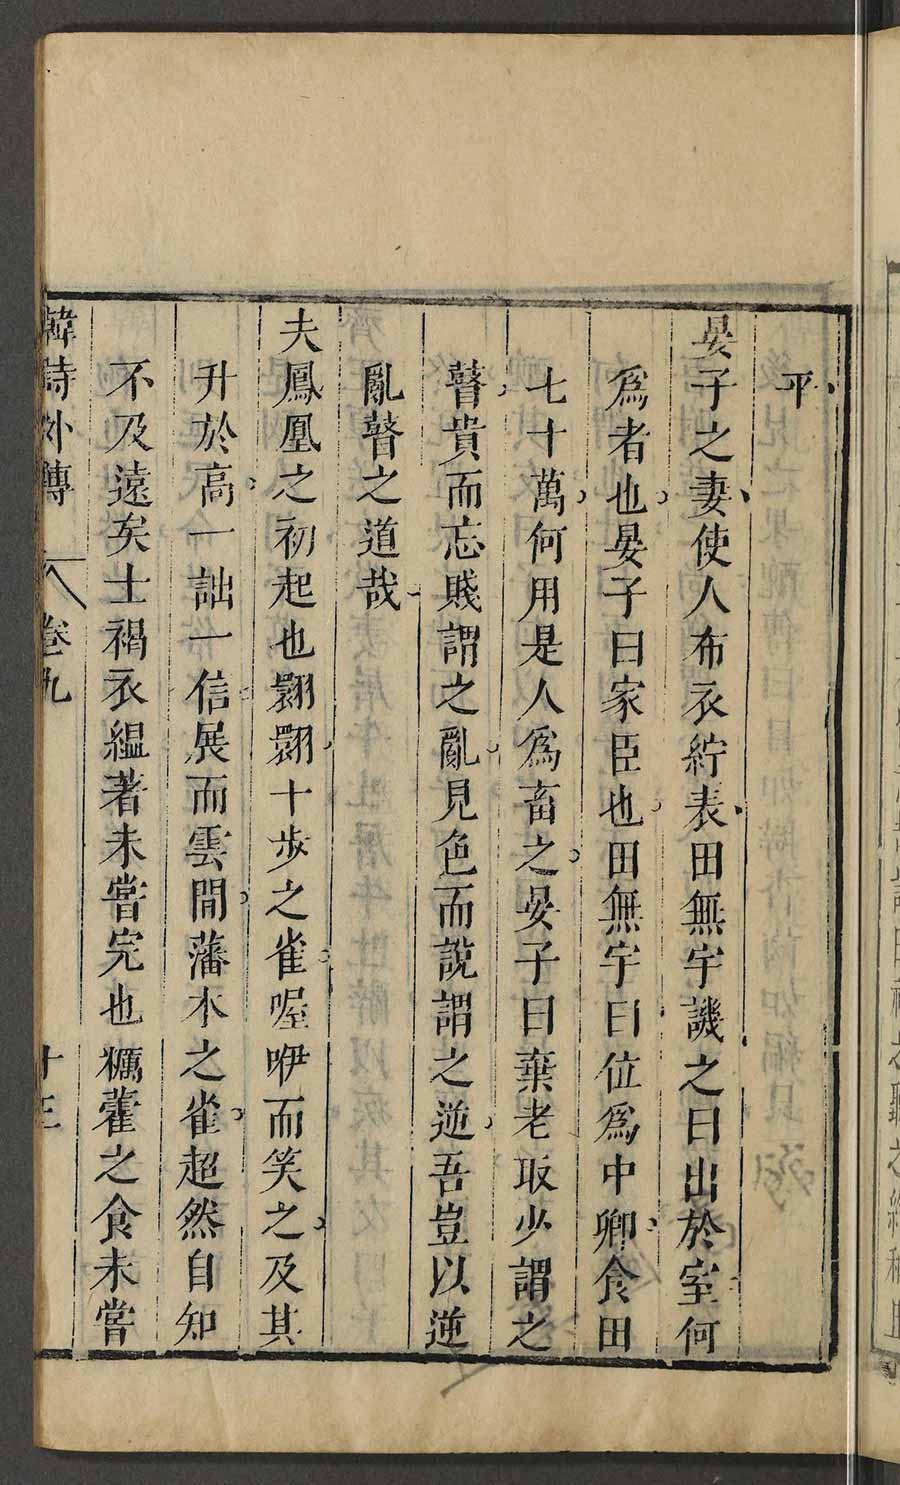 平
晏子之妻使人布衣紵表田無宇譏之曰出於室何
爲者也晏子曰家臣也田無宇曰位爲中卿食田
七十萬何用是人爲畜之晏子曰棄老取少謂之
瞽貴而忘賤謂之亂見色而說謂之逆吾豈以逆
亂瞽之道哉
夫鳳凰之初起也翾翾十步之雀喔咿而笑之及其
升於高一詘一信展而雲閒藩木之雀超然自知
不及遠矣士褐衣縕著未嘗完也糲藿之食未嘗
韓詩外傳 卷九 十三